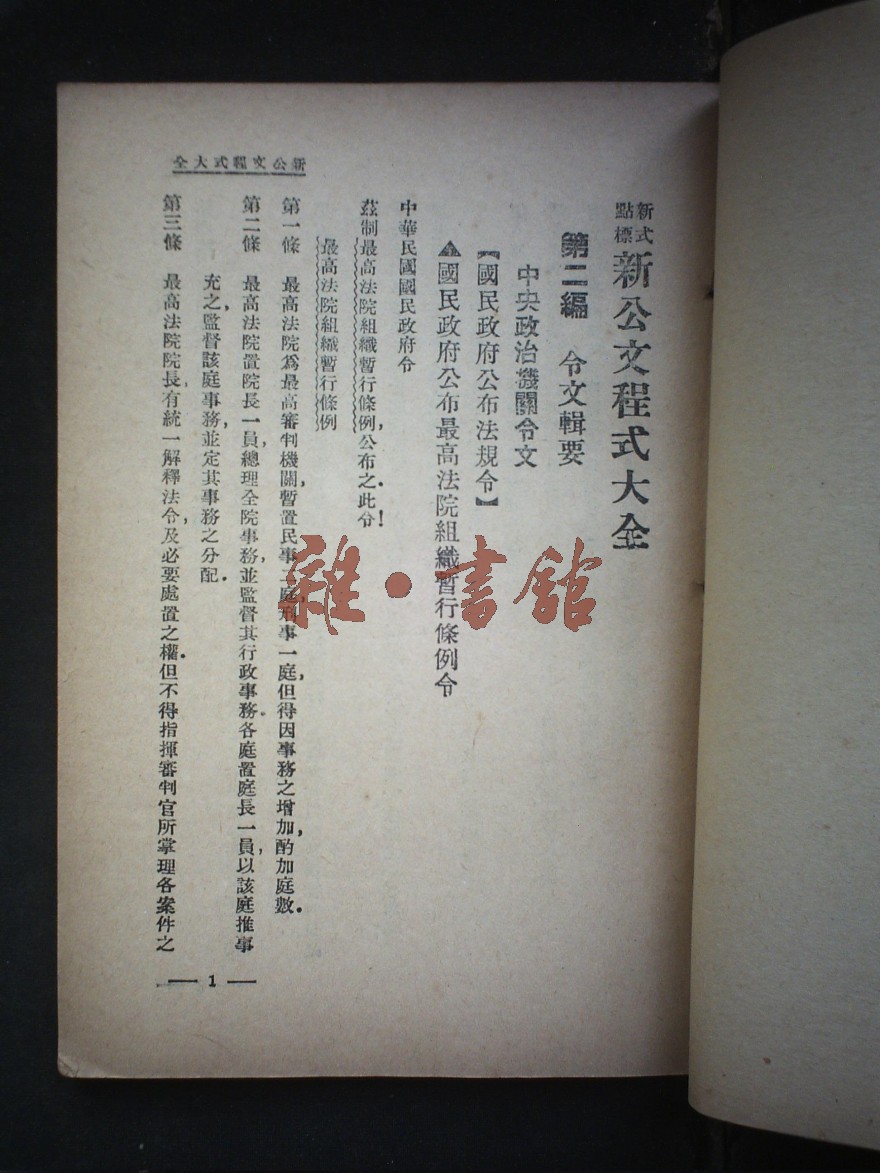 新式
標點
新公文程式大全
第二編　令文輯要
中央政治機關令文
【國民政府公布法規令】
▲國民政府公布最高法院組織暫行條例令
中華民國國民政府令
茲制最高法院組織暫行條例，公布之．此令！
最高法院組織暫行條例
第一條　最高法院爲最高審判機關，暫置民事二庭，刑事一庭，但得因事務之增加，酌加庭數．
第二條　最高法院置院長一員，總理全院事務，並監督其行政事務．各庭置庭長一員，以該庭推事
充之，監督該庭事務，並定其事務之分配．
第三條　最高法院院長，有統一解釋法令，及必要處置之權．但不得指揮審判官所掌理各案件之
新公文程式大全
— 1 —
雜·書館